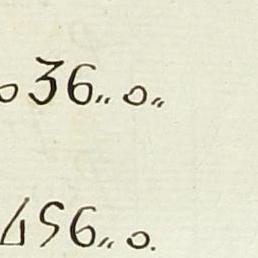 036,, 0,,
456,, 0.